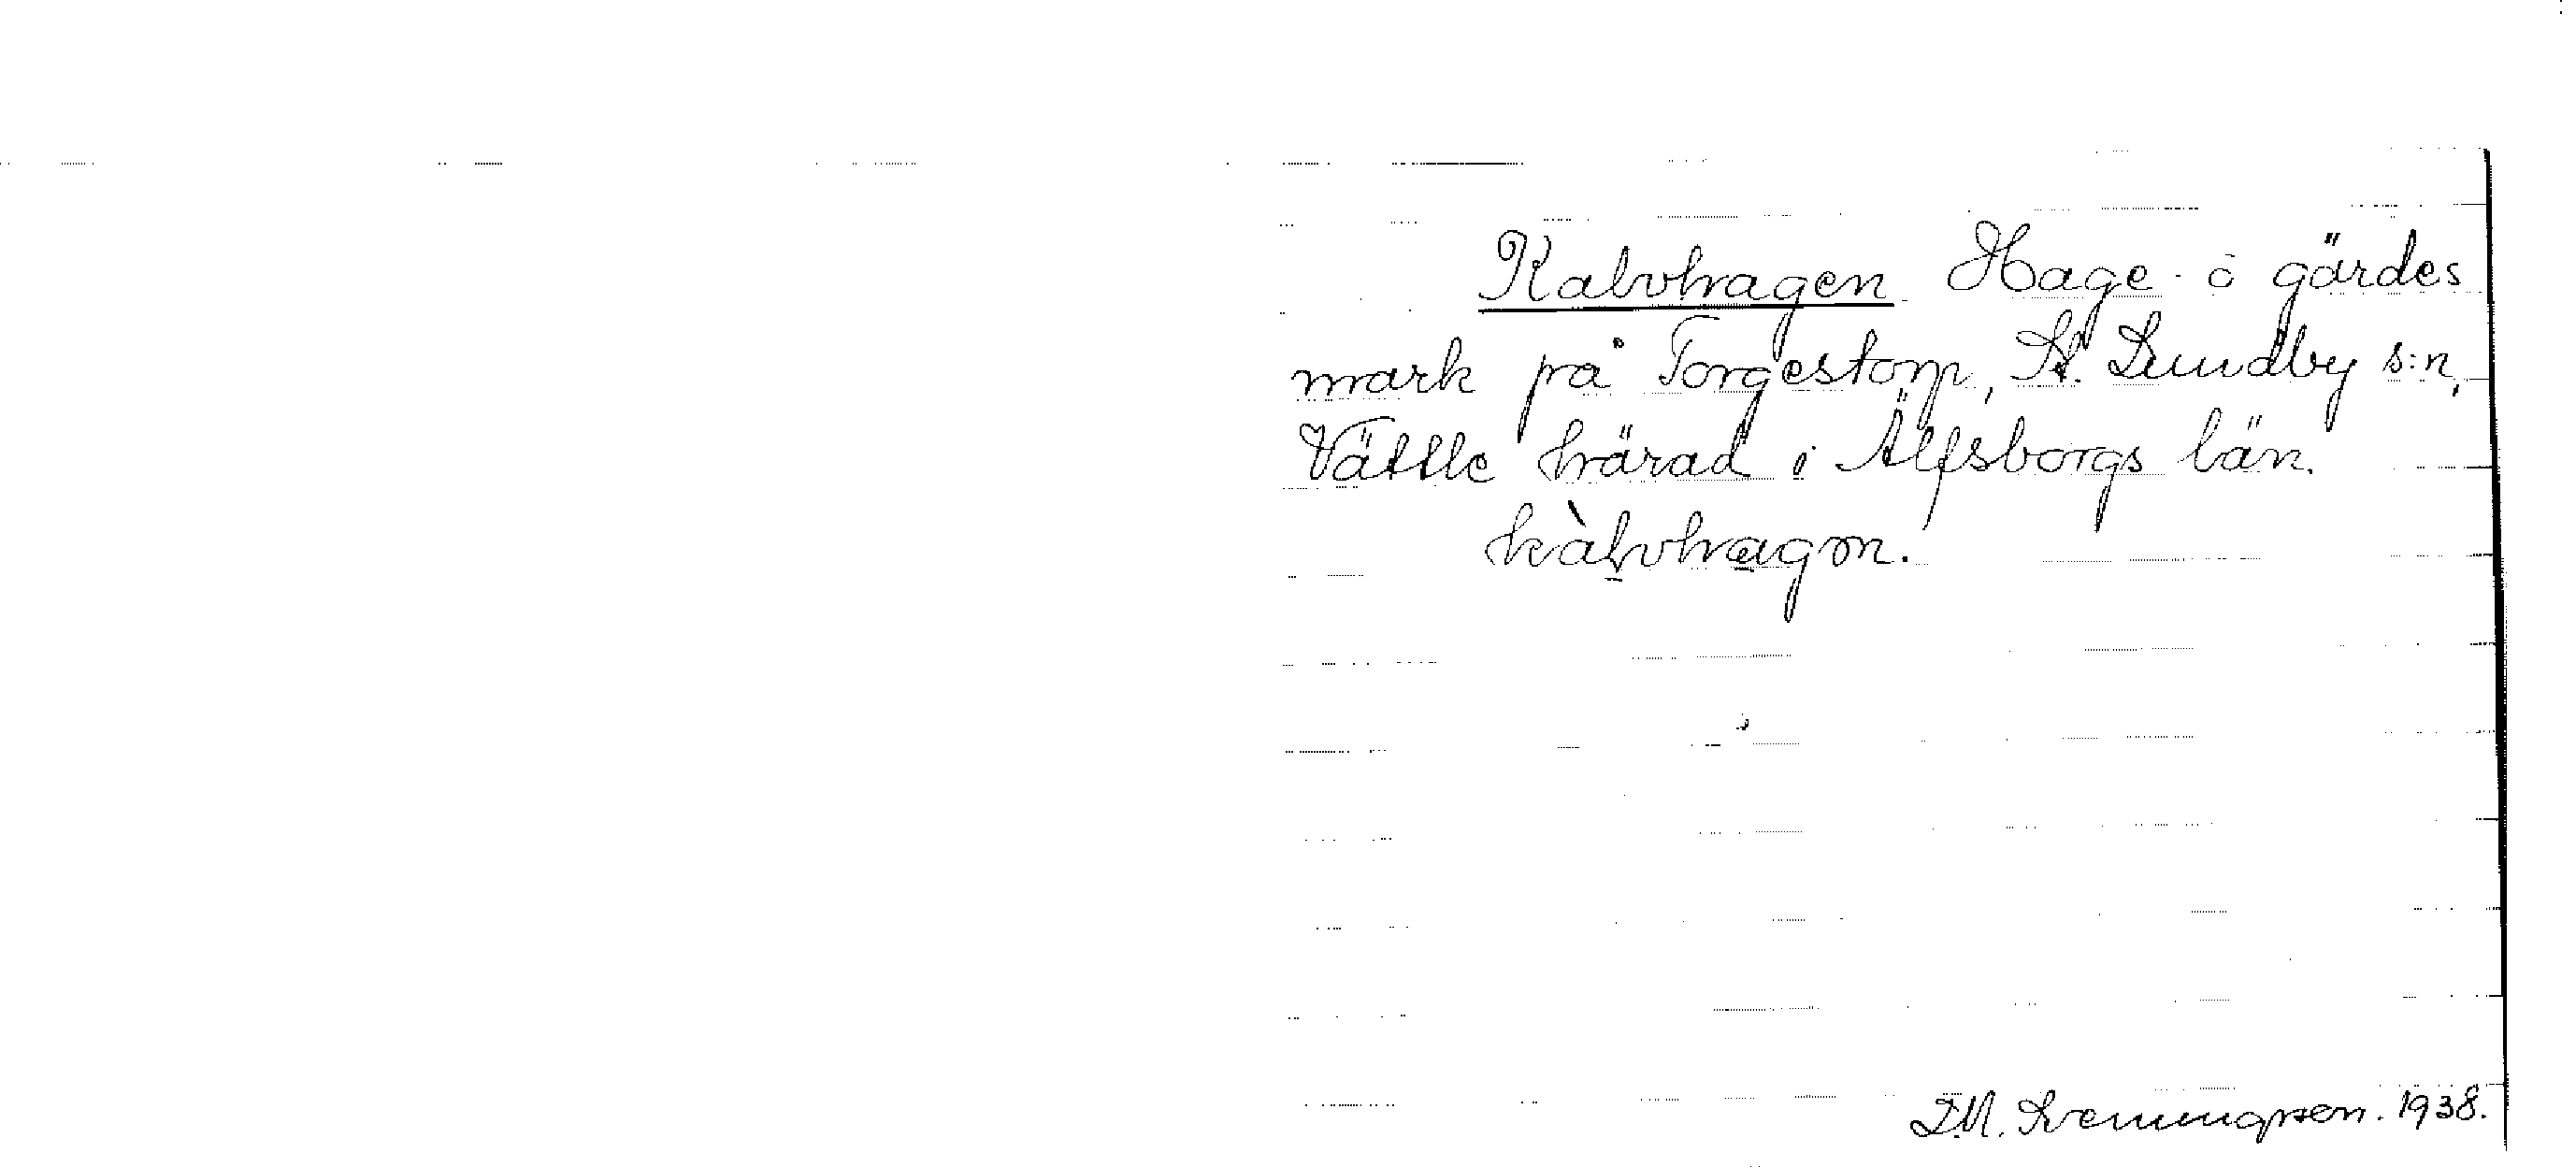 Kalvhagen Hage- o gärdes
mark på Torgestorp, St. Lundby s:n,
Vättle härad i Älfsborgs län.
kàlvhagɘn.
1938.